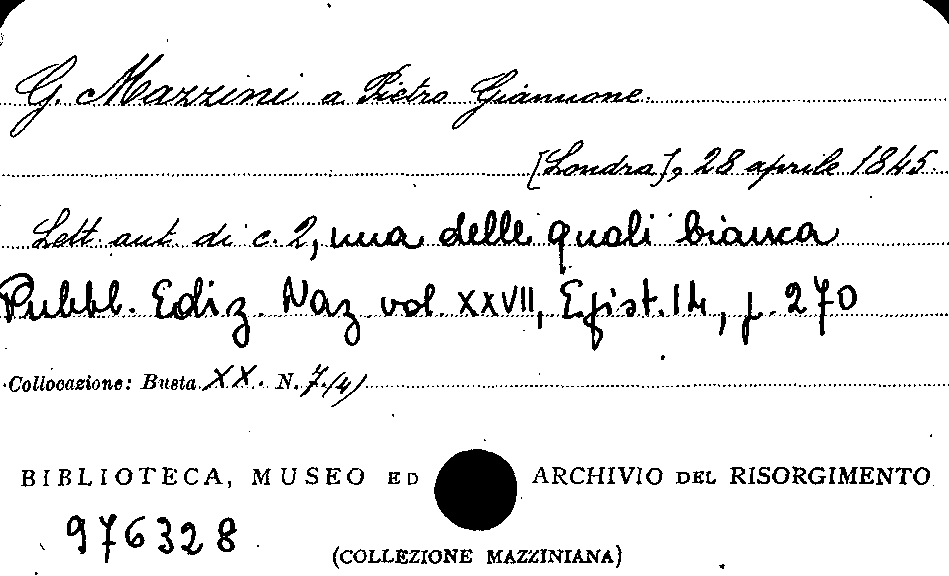 G. Mazzini a Pietro Giannone.
[Londra], 28 aprile 1845.
Lett. aut. di c. 2, una delle quali bianca
Pubbl. Ediz. Naz. vol. XXVII, Epist. 14, p. 270
Collocazione: Busta XX. N. 7.(4)
BIBLIOTECA, MUSEO ED ARCHIVIO DEL RISORGIMENTO
976328
(COLLEZIONE MAZZINIANA)